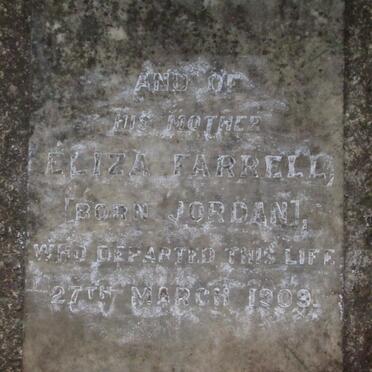 AND OF
HIS MOTHER
ELIZA FARRELL,
[BORN JORDAN],
WHO DEPARTED THIS LIFE
27TH MARCH 1909.